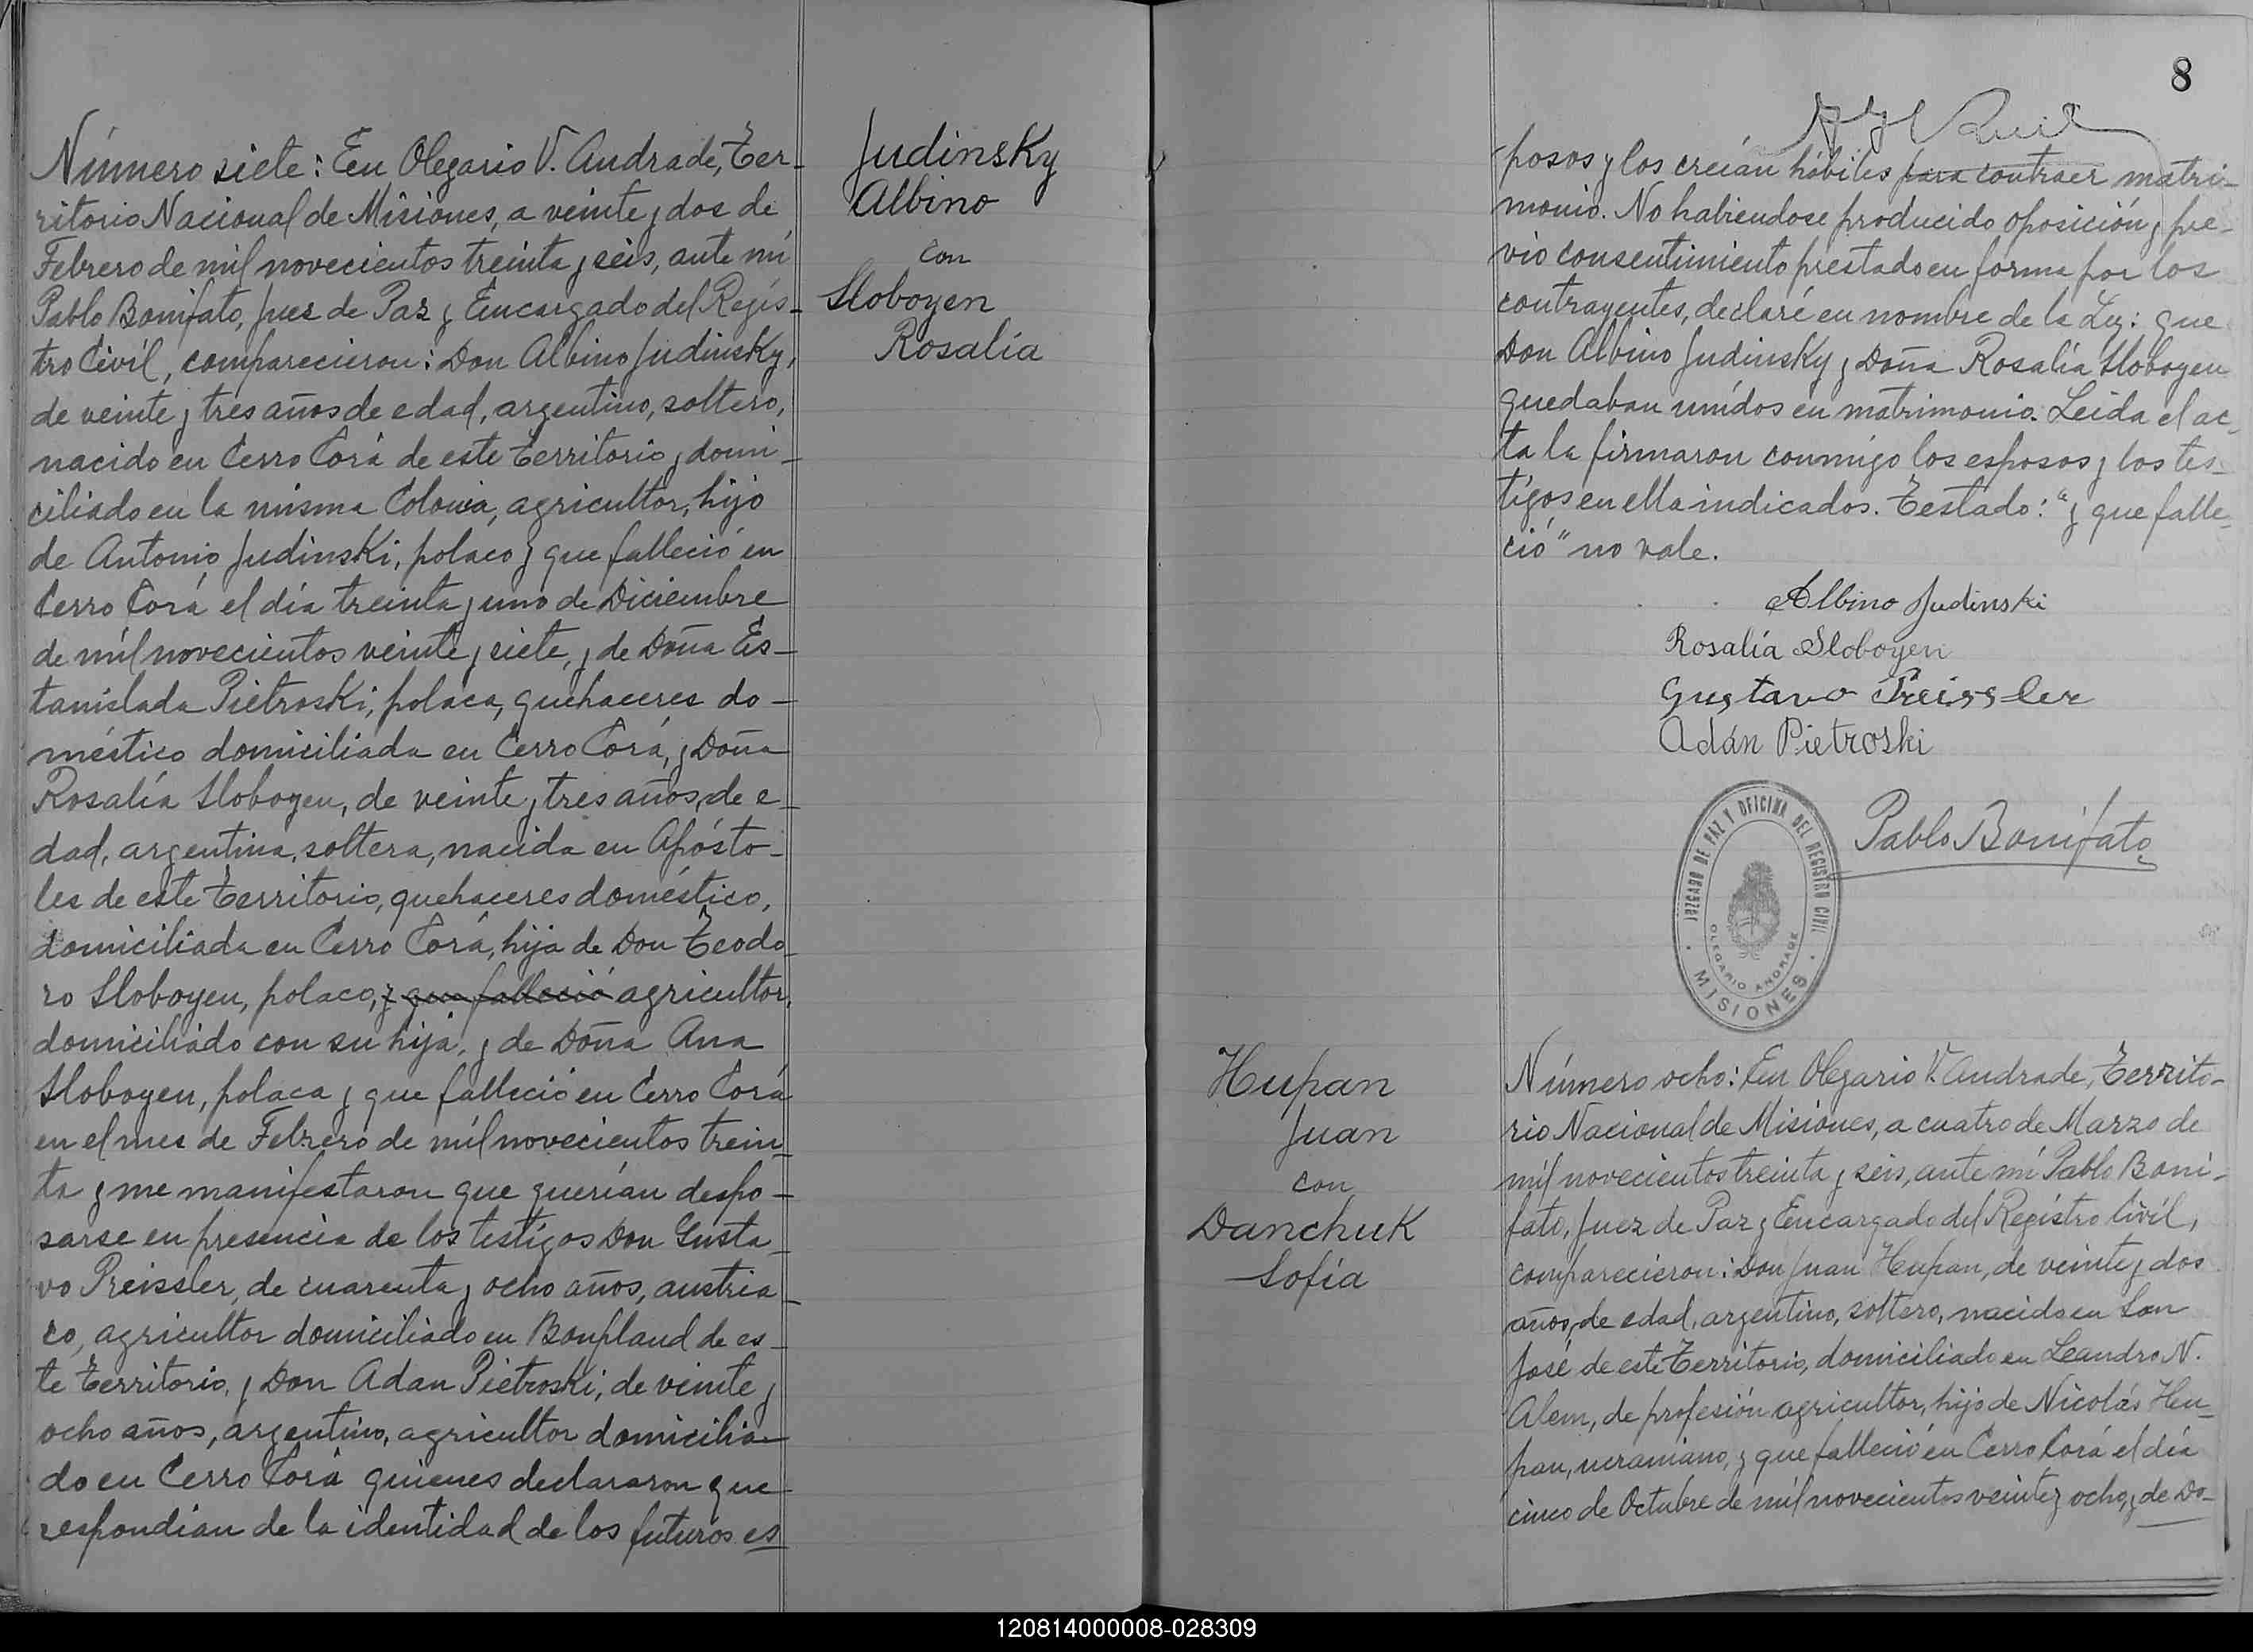 Número siete: En Olegario V. Andrade, Ter-
ritorio Nacional de Misiones, a veinte y dos de
Febrero de mil novecientos treinta y seis, ante mí
Pablo Bonifato, Juez de Paz y Encargado del Regis-
tro Civil, comparecieron: Don Albino Judinsky,
de veinte y tres años de edad, argentino, soltero,
nacido en Cerro Corá de este Territorio y domi-
ciliado en la misma Colonia, agricultor, hijo
de Antonio Judinski, polaco y que falleció en
Cerro Corá el día treinta y uno de Diciembre
de mil novecientos veinte y siete, y de Doña Es-
tanislada Pietroski, polaca, quehaceres do-
méstico domiciliada en Cerro Corá, y Doña
Rosalía Sloboyen, de veinte y tres años de e-
dad, argentina, soltera, nacida en Apósto-
les de este Territorio, quehaceres doméstico,
domiciliada en Cerro Corá, hija de Don Teodo-
ro Sloboyen, polaco, y que falleció agricultor,
domiciliado con su hija, y de Doña Ana
Sloboyen, polaca y que falleció en Cerro Corá
en el mes de Febrero de mil novecientos trein-
ta y me manifestaron que querían despo-
sarse en presencia de los testigos Don Gusta-
vo Preissler, de cuarenta y ocho años, austria-
co, agricultor domiciliado en Bonpland de es-
te Territorio, y Don Adan Pietroski, de veinte y
ocho años, argentino, agricultor domicilia-
do en Cerro Corá quienes declararon que
respondían de la identidad de los futuros es
Judinsky
Albino
con
Sloboyen
Rosalía
8
posos y los creían hábiles para contraer matri-
monio. No habiendose producido oposición y pre-
vio consentimiento prestado en forma por los
contrayentes, declaré en nombre de la Ley: que
Don Albino Judinsky y Doña Rosalía Sloboyen
quedaban unidos en matrimonio. Leida el ac-
ta la firmaron conmigo los esposos y los tes-
tigos en ella indicados. Testado: "y que falle-
ció" no vale.
Albino Judinski
Rosalía Sloboyen
Gustavo Preissler
Adán Pietroski
Pablo Bonifato
JUZGADO DE PAZ Y OFICINA DEL REGISTRO CIVIL
OLEGARIO ANDRADE
MISIONES
Hupan
Juan
con
Danchuk
Sofía
Número ocho: En Olegario V. Andrade, Territo-
rio Nacional de Misiones, a cuatro de Marzo de
mil novecientos treinta y seis, ante mí Pablo Boni-
fato, Juez de Paz y Encargado del Registro Civil,
comparecieron: Don Juan Hupan, de veinte y dos
años de edad, argentino, soltero, nacido en San
José de este Territorio, domiciliado en Leandro N.
Alem, de profesión agricultor, hijo de Nicolás Hu-
pan, ucraniano, y que falleció en Cerro Corá el día
cinco de Octubre de mil novecientos veinte y ocho, y de Do-
120814000008-028309